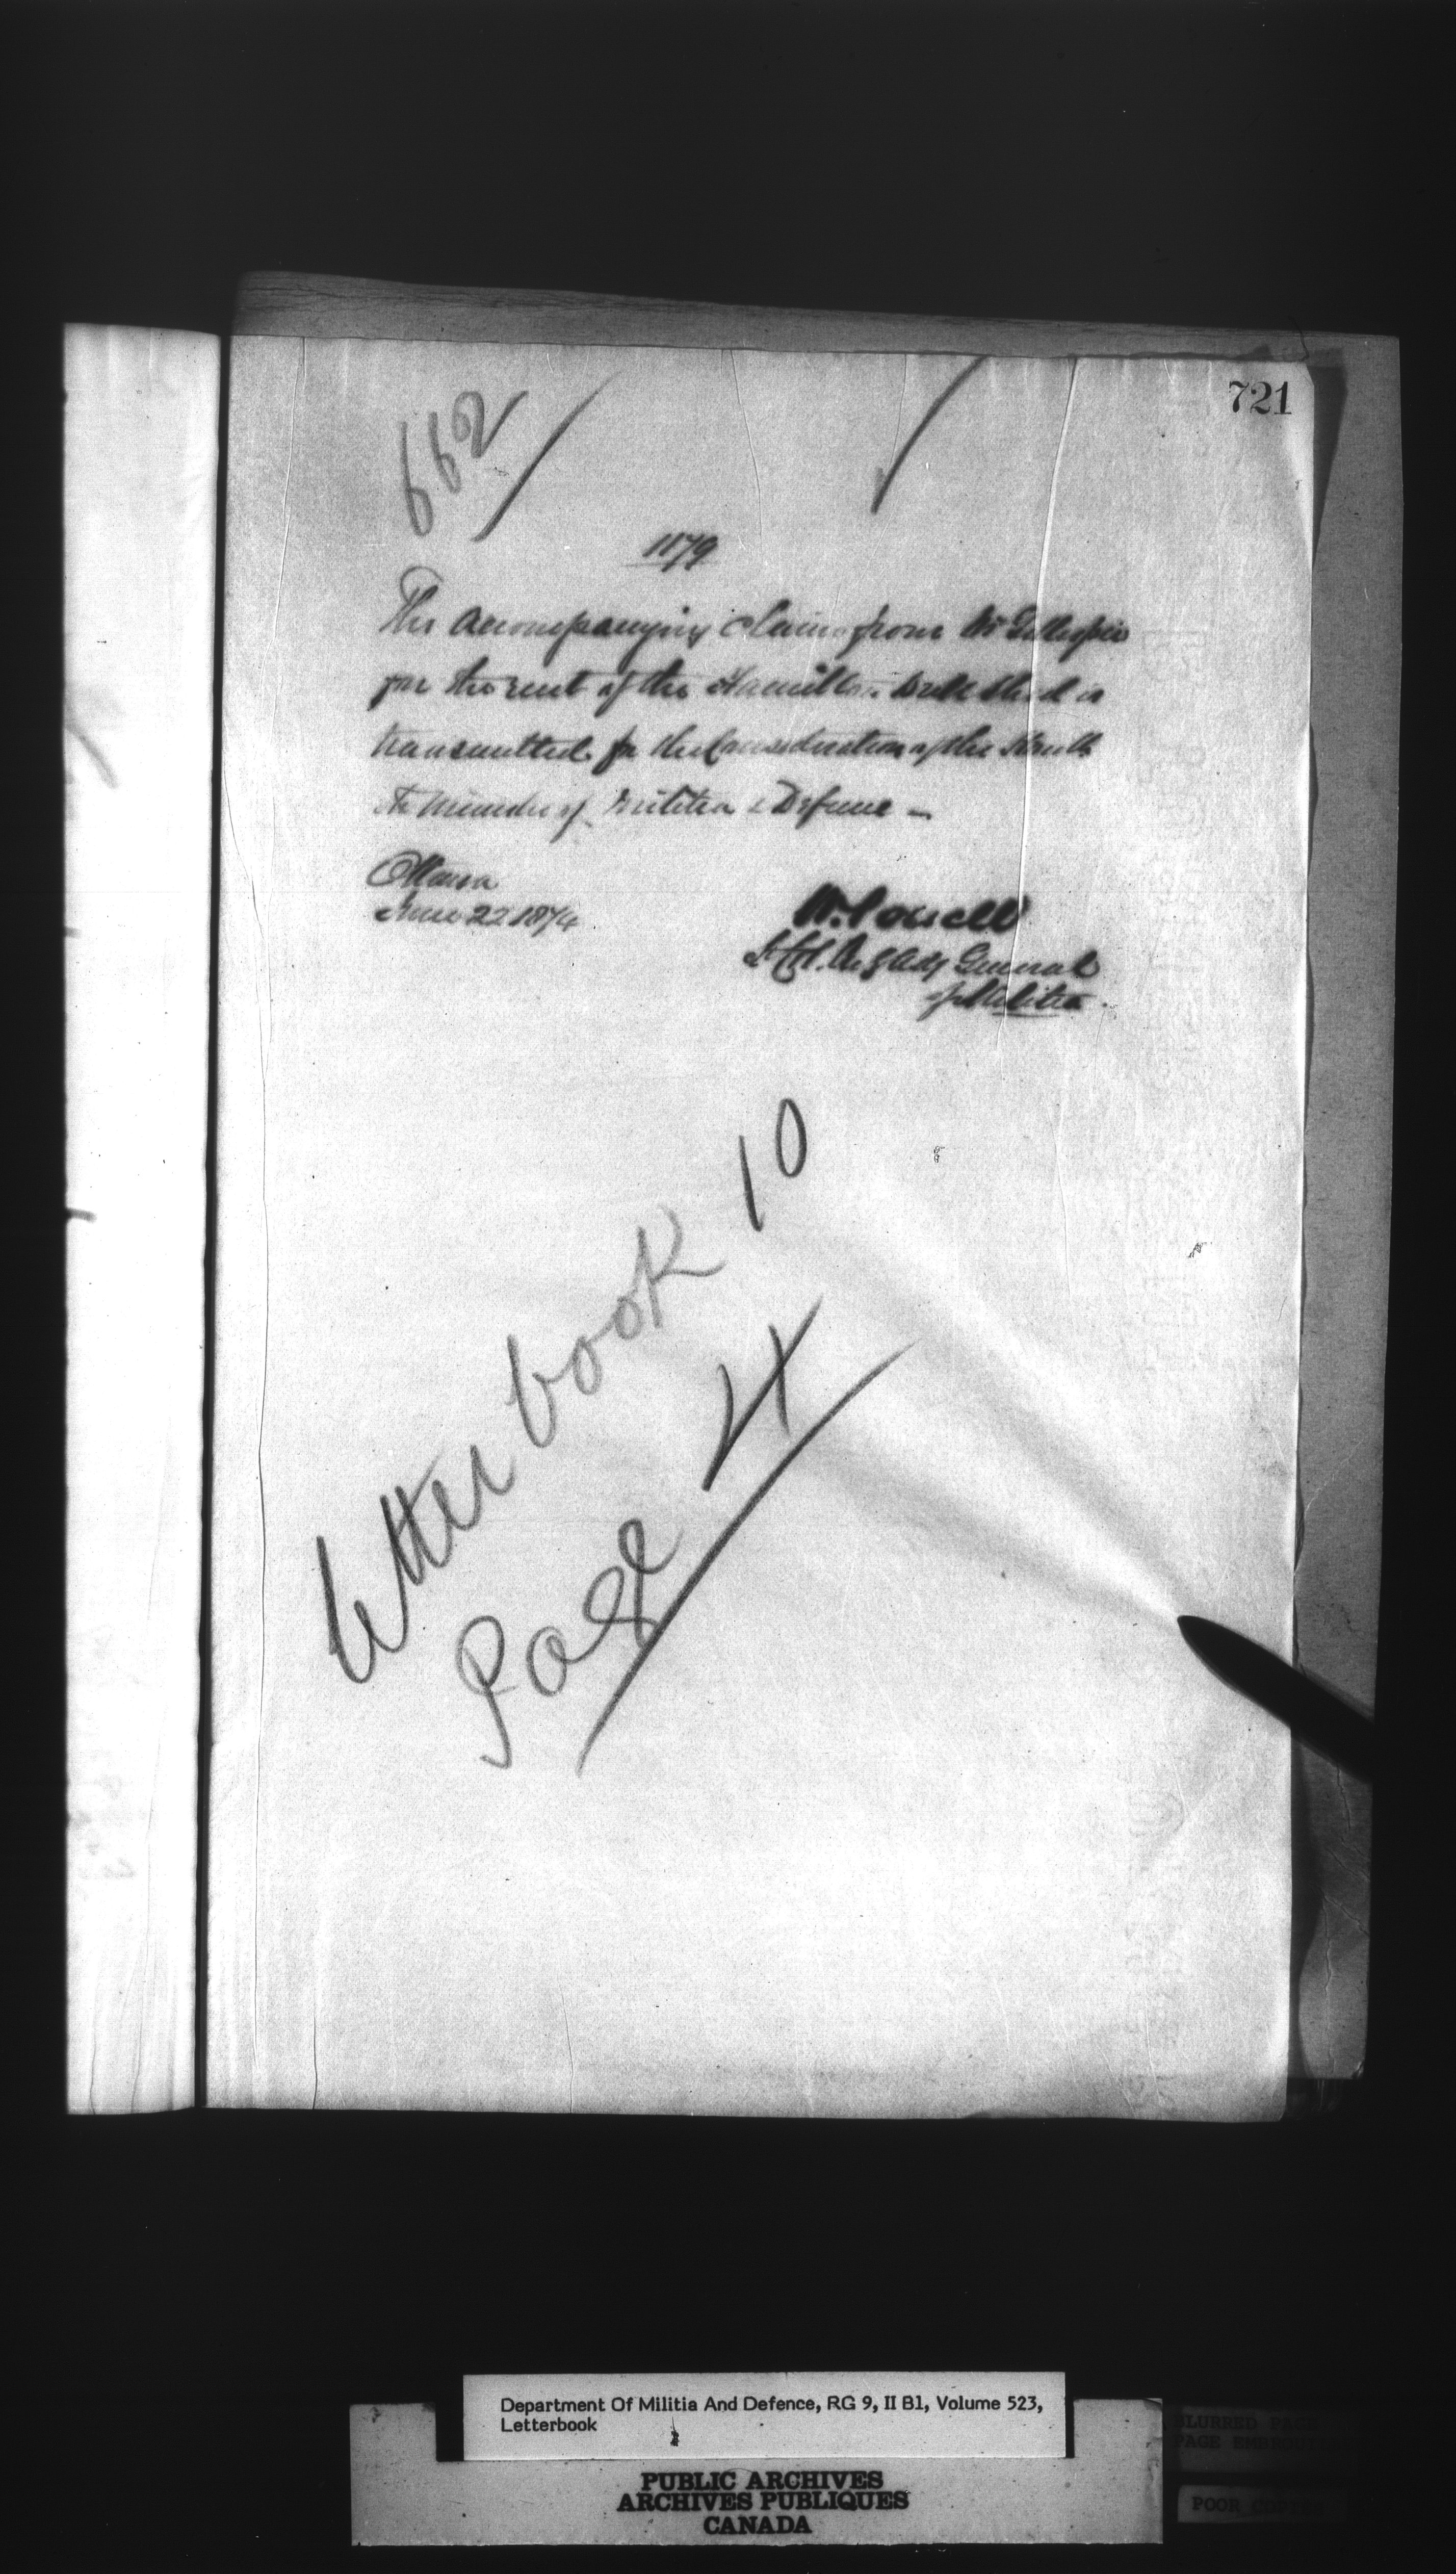 721
662
1879
The accompanying claim from Mr Gillespie
for the rent of the Hamilton Drill Shed is
transmitted for the Consideration of the Honble
the Minister of Militia & Defence —
Ottawa
June 22 1874
W. Powell
Lt Col. Actg Adjt General
of Militia
Letter book 10
Page 4
Department Of Militia And Defence, RG 9, II B1, Volume 523,
Letterbook
PUBLIC ARCHIVES
ARCHIVES PUBLIQUES
CANADA
BLURRED PAGE
PAGE
POOR